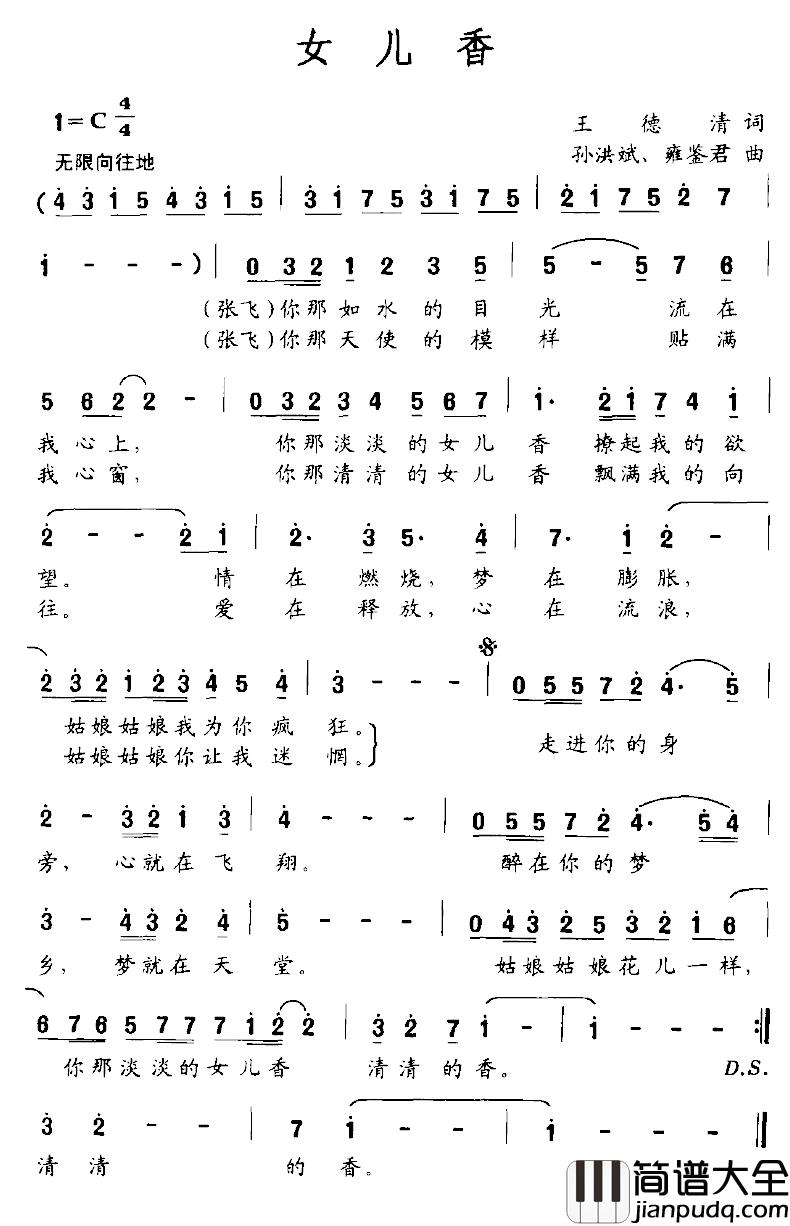 女儿香
1=C 4/4
王德清词
无限向往地
孙洪斌、雍鉴君曲
(4 3 1 5 4 3 1 5 | 3 1 7 5 3 1 7 5 | 2 1 7 5 2 7 |
1 - - -) | 0 3 2 1 2 3 5 | 5 - 5 7 6 |
(张飞)你那如水的目光 流在
(张飞)你那天使的模样 贴满
5 6 2 2 - | 0 3 2 3 4 5 6 7 | 1· 2 1 7 4 1 |
我心上, 你那淡淡的女儿香 撩起我的欲
我心窗, 你那清清的女儿香 飘满我的向
2 - - 2 1 | 2· 3 5· 4 | 7· 1 2 - |
望。 情在燃烧,梦在膨胀,
往。 爱在释放,心在流浪,
2 3 2 1 2 3 4 5 4 | 3 - - - | 0 5 5 7 2 4· 5 |
姑娘姑娘我为你疯狂。
姑娘姑娘你让我迷惘。
走进你的身
2 - 3 2 1 3 | 4 - - - | 0 5 5 7 2 4· 5 4 |
旁, 心就在飞翔。 醉在你的梦
3 - 4 3 2 4 | 5 - - - | 0 4 3 2 5 3 2 1 6 |
乡, 梦就在天堂。 姑娘姑娘花儿一样,
6 7 6 5 7 7 7 1 2 2 | 3 2 7 1 - | 1 - - - :||
你那淡淡的女儿香 清清的香。 D.S.
3 2 - - | 7 1 - - | 1 - - - ||
清清 的香。
简谱大全
jianpudq.com